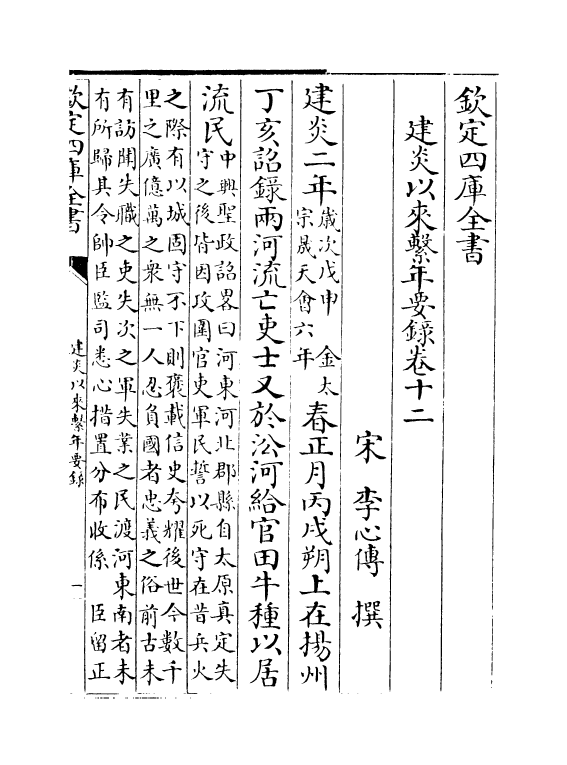 欽定四庫全書
建炎以來繫年要錄卷十二
宋 李心傳 撰
建炎二年
歲次戊申 金太
宗晟天會六年
春正月丙戌朔上在揚州
丁亥詔錄兩河流亡吏士又於㳂河給官田牛種以居
流民
中興聖政詔畧曰河東河北郡縣自太原真定失
守之後皆因攻圍官吏軍民誓以死守在昔兵火
之際有以城固守不下則褒載信史夸耀後世今數千
里之廣億萬之衆無一人忍負國者忠義之俗前古未
有訪聞失職之吏失次之軍失業之民渡河東南者未
有所歸其令帥臣監司悉心措置分布收係 臣留正
欽定四庫全書
建炎以來繫年要錄
一